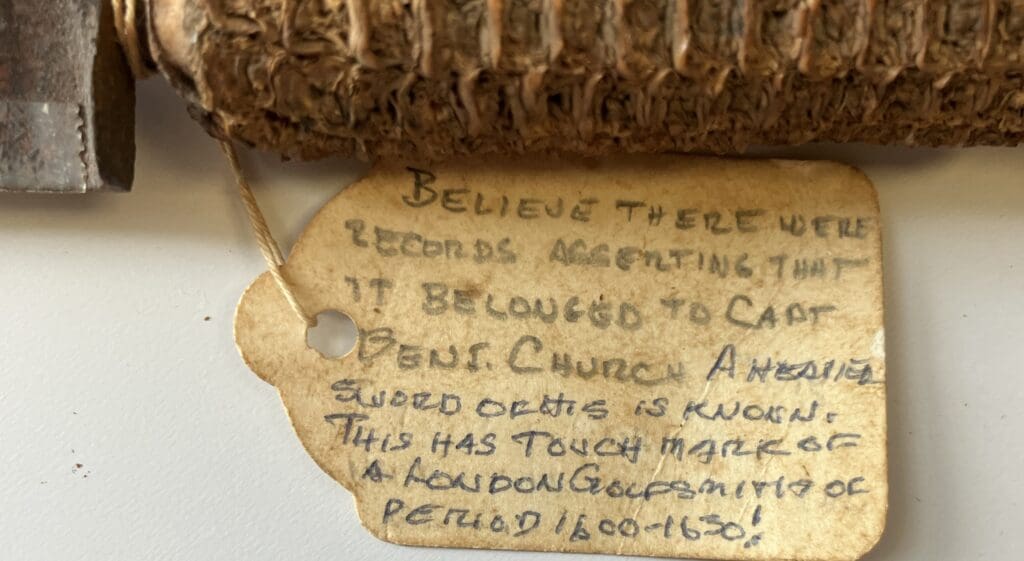 BELIEVE THERE WERE
RECORDS ASSERTING THAT
IT BELONGED TO CAPT
BENJ. CHURCH A HEAVIER
SWORD OF HIS IS KNOWN.
THIS HAS TOUCH MARK OF
A LONDON GOLDSMITH OF
PERIOD 1600-1650!